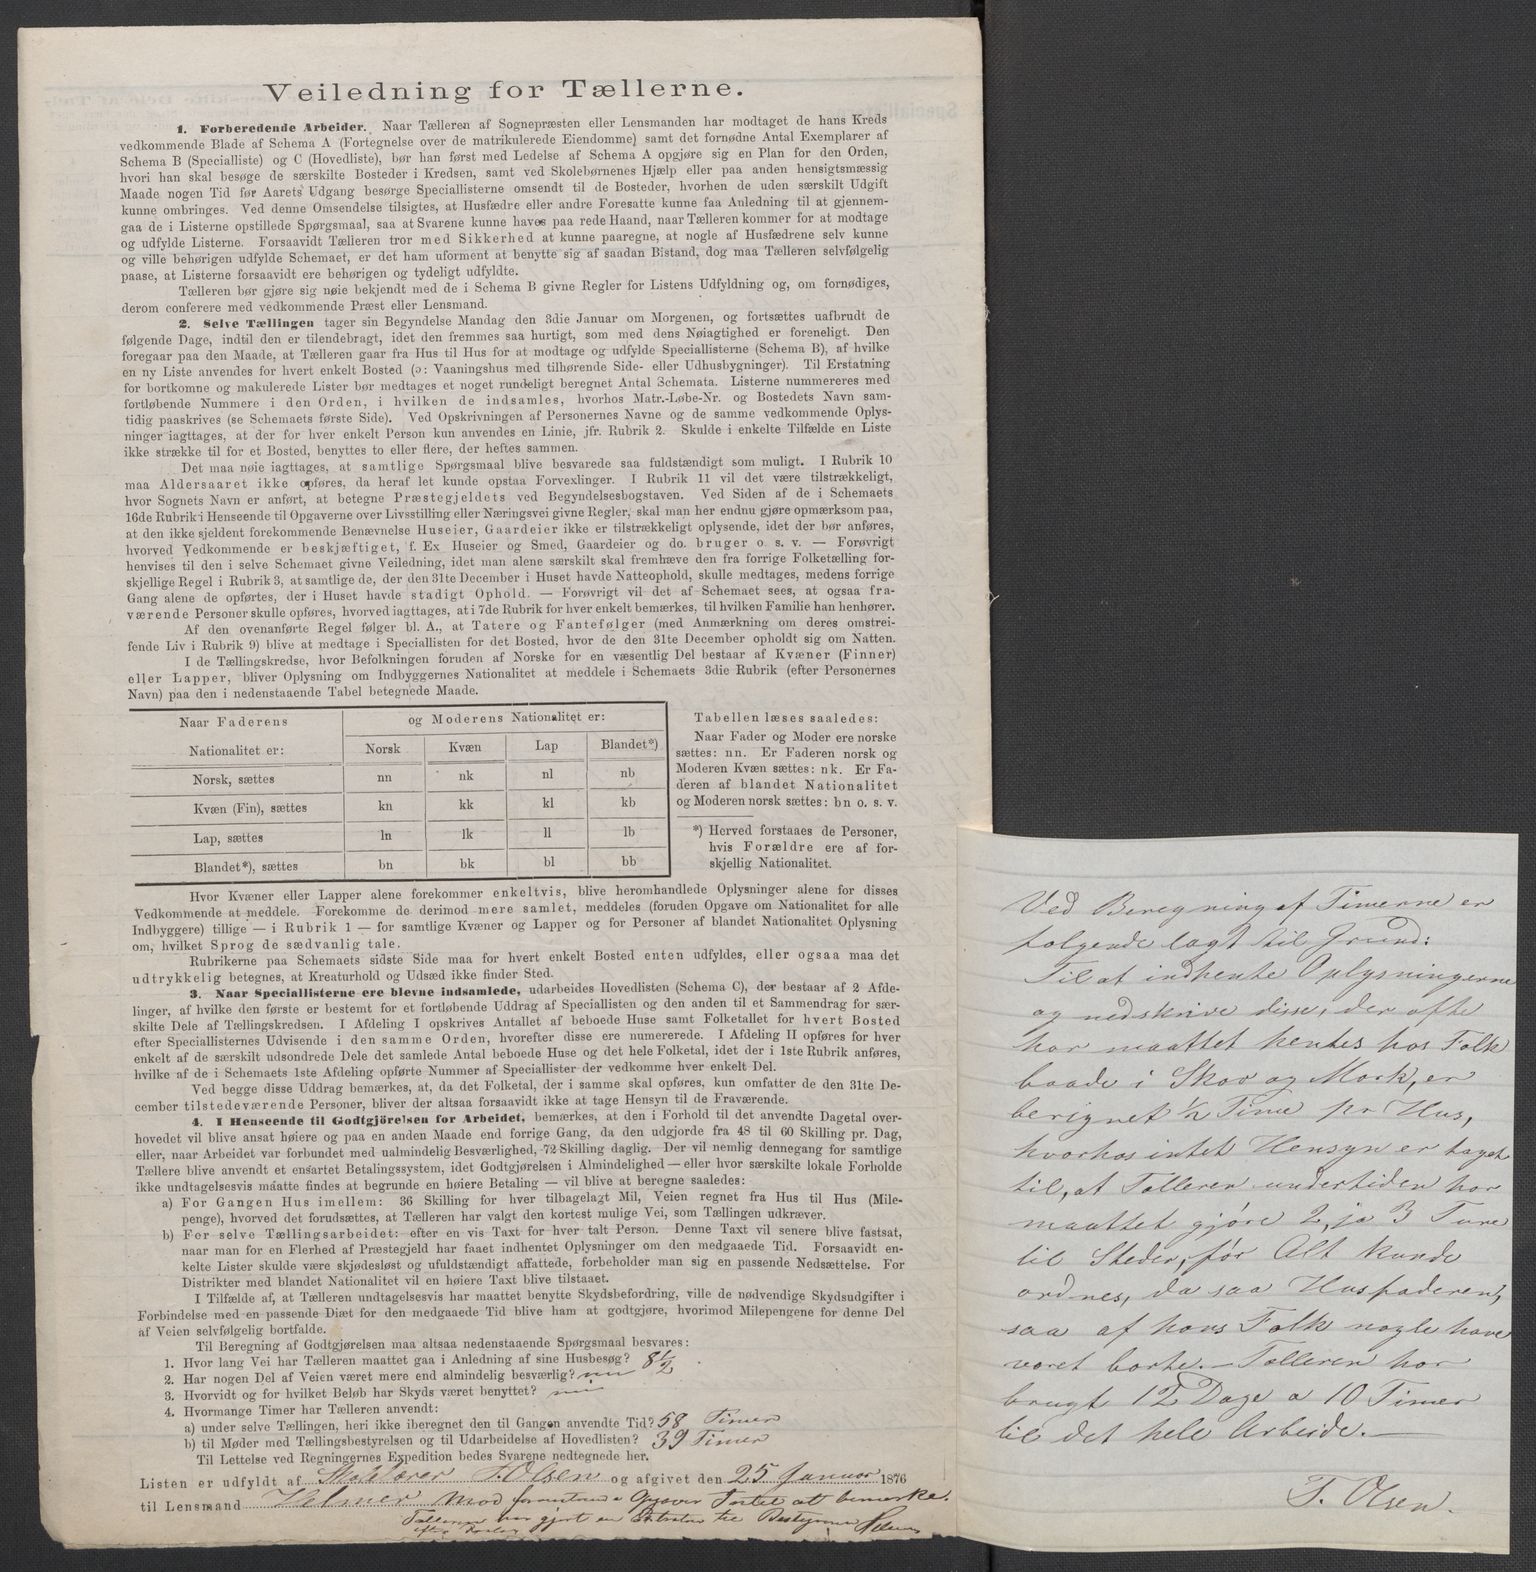 Veiledning for Tællerne.
1. Forberedende Arbeider. Naar Tælleren af Sognepræsten eller Lensmanden har modtaget de hans Kreds
vedkommende Blade af Schema A (Fortegnelse over de matrikulerede Eiendomme) samt det fornødne Antal Exemplarer af
Schema B (Specialliste) og C (Hovedliste), bør han først med Ledelse af Schema A opgjøre sig en Plan for den Orden,
hvori han skal besøge de særskilte Bosteder i Kredsen, samt ved Skolebørnenes Hjælp eller paa anden hensigtsmæssig
Maade nogen Tid før Aarets Udgang besørge Speciallisterne omsendt til de Bosteder, hvorhen de uden særskilt Udgift
kunne ombringes. Ved denne Omsendelse tilsigtes, at Husfædre eller andre Foresatte kunne faa Anledning til at gjennem-
gaa de i Listerne opstillede Spørgsmaal, saa at Svarene kunne haves paa rede Haand, naar Tælleren kommer for at modtage
og udfylde Listerne. Forsaavidt Tælleren tror med Sikkerhed at kunne paaregne, at nogle af Husfædrene selv kunne
og ville behørigen udfylde Schemaet, er det ham uforment at benytte sig af saadan Bistand, dog maa Tælleren selvfølgelig
paase, at Listerne forsaavidt ere behørigen og tydeligt udfyldte.
Tælleren bør gjøre sig nøie bekjendt med de i Schema B givne Regler for Listens Udfyldning og, om fornødiges,
derom conferere med vedkommende Præst eller Lensmand.
2. Selve Tællingen tager sin Begyndelse Mandag den 3die Januar om Morgenen, og fortsættes uafbrudt de
følgende Dage, indtil den er tilendebragt, idet den fremmes saa hurtigt, som med dens Nøiagtighed er foreneligt. Den
foregaar paa den Maade, at Tælleren gaar fra Hus til Hus for at modtage og udfylde Speciallisterne (Schema B), af hvilke
en ny Liste anvendes for hvert enkelt Bosted (ɔ: Vaaningshus med tilhørende Side- eller Udhusbygninger). Til Erstatning
for bortkomne og makulerede Lister bør medtages et noget rundeligt beregnet Antal Schemata. Listerne nummereres med
fortløbende Nummere i den Orden, i hvilken de indsamles, hvorhos Matr.-Løbe-Nr. og Bostedets Navn sam-
tidig paaskrives (se Schemaets første Side). Ved Opskrivningen af Personernes Navne og de samme vedkommende Oplys-
ninger iagttages, at der for hver enkelt Person kun anvendes en Linie, jfr. Rubrik 2. Skulde i enkelte Tilfælde en Liste
ikke strække til for et Bosted, benyttes to eller flere, der heftes sammen.
Det maa nøie iagttages, at samtlige Spørgsmaal blive besvarede saa fuldstændigt som muligt. I Rubrik 10
maa Aldersaaret ikke opføres, da heraf let kunde opstaa Forvexlinger. I Rubrik 11 vil det være tilstrækkeligt,
hvor Sognets Navn er anført, at betegne Præstegjeldets ved Begyndelsesbogstaven. Ved Siden af de i Schemaets
16de Rubrik i Henseende til Opgaverne over Livsstilling eller Næringsvei givne Regler, skal man her endnu gjøre opmærksom paa,
at den ikke sjeldent forekommende Benævnelse Huseier, Gaardeier ikke er tilstrækkeligt oplysende, idet der bør anføres,
hvorved Vedkommende er beskjæftiget, f. Ex Huseier og Smed, Gaardeier og do. bruger o s. v. — Forøvrigt
henvises til den i selve Schemaet givne Veiledning, idet man alene særskilt skal fremhæve den fra forrige Folketælling for-
skjellige Regel i Rubrik 3, at samtlige de, der den 31te December i Huset havde Natteophold, skulle medtages, medens forrige
Gang alene de opførtes, der i Huset havde stadigt Ophold. — Forøvrigt vil det af Schemaet sees, at ogsaa fra-
værende Personer skulle opføres, hvorved iagttages, at i 7de Rubrik for hver enkelt bemærkes, til hvilken Familie han henhører.
Af den ovenanførte Regel følger bl. A., at Tatere og Fantefølger (med Anmærkning om deres omstrei-
fende Liv i Rubrik 9) blive at medtage i Speciallisten for det Bosted, hvor de den 31te December opholdt sig om Natten.
I de Tællingskredse, hvor Befolkningen foruden af Norske for en væsentlig Del bestaar af Kvæner (Finner)
eller Lapper, bliver Oplysning om Indbyggernes Nationalitet at meddele i Schemaets 3die Rubrik (efter Personernes
Navn) paa den i nedenstaaende Tabel betegnede Maade.
Naar Faderens og Moderens Nationalitet er:
Nationalitet er: Norsk Kvæn Lap Blandet*)
Norsk, sættes nn nk nl nb
Kvæn (Fin), sættes kn kk kl kb
Lap, sættes ln lk ll lb
Blandet*), sættes bn bk bl bb
Tabellen læses saaledes:
Naar Fader og Moder ere norske
sættes: nn. Er Faderen norsk og
Moderen Kvæn sættes: nk. Er Fa-
deren af blandet Nationalitet
og Moderen norsk sættes: bn o. s. v.
*) Herved forstaaes de Personer,
hvis Forældre ere af for-
skjellig Nationalitet.
Hvor Kvæner eller Lapper alene forekommer enkeltvis, blive heromhandlede Oplysninger alene for disses
Vedkommende at meddele. Forekomme de derimod mere samlet, meddeles (foruden Opgave om Nationalitet for alle
Indbyggere) tillige — i Rubrik 1 — for samtlige Kvæner og Lapper og for Personer af blandet Nationalitet Oplysning
om, hvilket Sprog de sædvanlig tale.
Rubrikerne paa Schemaets sidste Side maa for hvert enkelt Bosted enten udfyldes, eller ogsaa maa det
udtrykkelig betegnes, at Kreaturhold og Udsæd ikke finder Sted.
3. Naar Speciallisterne ere blevne indsamlede, udarbeides Hovedlisten (Schema C), der bestaar af 2 Afde-
linger, af hvilke den første er bestemt for et fortløbende Uddrag af Speciallisten og den anden til et Sammendrag for sær-
skilte Dele af Tællingskredsen. I Afdeling I opskrives Antallet af beboede Huse samt Folketallet for hvert Bosted
efter Speciallisternes Udvisende i den samme Orden, hvorefter disse ere numererede. I Afdeling II opføres for hver
enkelt af de særskilt udsondrede Dele det samlede Antal beboede Huse og det hele Folketal, idet der i 1ste Rubrik anføres,
hvilke af de i Schemaets 1ste Afdeling opførte Nummer af Speciallister der vedkomme hver enkelt Del.
Ved begge disse Uddrag bemærkes, at, da det Folketal, der i samme skal opføres, kun omfatter de den 31te De-
cember tilstedeværende Personer, bliver der altsaa forsaavidt ikke at tage Hensyn til de Fraværende.
4. I Henseende til Godtgjörelsen for Arbeidet, bemærkes, at den i Forhold til det anvendte Dagetal over-
hovedet vil blive ansat høiere og paa en anden Maade end forrige Gang, da den udgjorde fra 48 til 60 Skilling pr. Dag,
eller, naar Arbeidet var forbundet med ualmindelig Besværlighed, 72 Skilling daglig. Der vil nemlig dennegang for samtlige
Tællere blive anvendt et ensartet Betalingssystem, idet Godtgjørelsen i Almindelighed — eller hvor særskilte lokale Forholde
ikke undtagelsesvis maatte findes at begrunde en høiere Betaling — vil blive at beregne saaledes:
a) For Gangen Hus imellem: 36 Skilling for hver tilbagelagt Mil, Veien regnet fra Hus til Hus (Mile-
penge), hvorved det forudsættes, at Tælleren har valgt den kortest mulige Vei, som Tællingen udkræver.
b) For selve Tællingsarbeidet: efter en vis Taxt for hver talt Person. Denne Taxt vil senere blive fastsat,
naar man for en Flerhed af Præstegjeld har faaet indhentet Oplysninger om den medgaaede Tid. Forsaavidt en-
kelte Lister skulde være skjødesløst og ufuldstændigt affattede, forbeholder man sig en passende Nedsættelse. For
Distrikter med blandet Nationalitet vil en høiere Taxt blive tilstaaet.
I Tilfælde af, at Tælleren undtagelsesvis har maattet benytte Skydsbefordring, ville de nødvendige Skydsudgifter i
Forbindelse med en passende Diæt for den medgaaede Tid blive ham at godtgjøre, hvorimod Milepengene for denne Del
af Veien selvfølgelig bortfalde.
Til Beregning af Godtgjørelsen maa altsaa nedenstaaende Spørgsmaal besvares:
1. Hvor lang Vei har Tælleren maattet gaa i Anledning af sine Husbesøg? 8½
2. Har nogen Del af Veien været mere end almindelig besværlig? nei
3. Hvorvidt og for hvilket Beløb har Skyds været benyttet? nei
4. Hvormange Timer har Tælleren anvendt:
a) under selve Tællingen, heri ikke iberegnet den til Gangen anvendte Tid? 58 Timer
b) til Møder med Tællingsbestyrelsen og til Udarbeidelse af Hovedlisten? 39 Timer
Til Lettelse ved Regningernes Expedition bedes Svarene nedtegnede her.
Listen er udfyldt af Skolelærer T. Olsen og afgivet den 25 Januar 1876
til Lensmand Helmer Mod at bemærke.
Tælleren har gjort en til Bestyreren Helmer
Ved Beregning af Timerne er
følgende lagt til Grund:
Til at indhente Oplysningerne
og nedskrive disse, der ofte
har maattet hentes hos Folk
baade i Skov og Mark, er
beregnet ½ Time pr Hus,
hvorhos intet Hensyn er taget
til, at Tælleren undertiden har
maattet gjøre 2, ja 3 Ture
til Steder, før Alt kunde
ordnes, da saa Husfaderen,
saa af hans Folk nogle have
været borte. — Tælleren har
brugt 12 Dage a 10 Timer
til det hele Arbeide. —
T. Olsen.